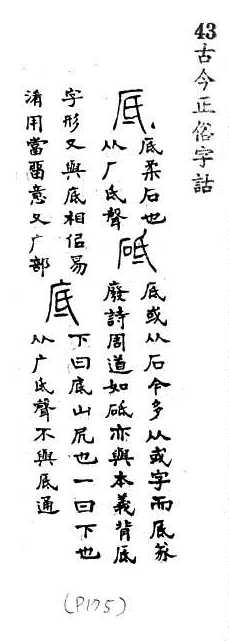 43
古今正俗字詁
厎
厎柔石也
从厂氐聲
砥
厎或从石今多从或字而厎㒸
廢詩周道如砥亦與本義背厎
字形又與底相侣易
淆用當畱意又广部
底
下曰底山凥也一曰下也
从广氐聲不與厎通
(P175)